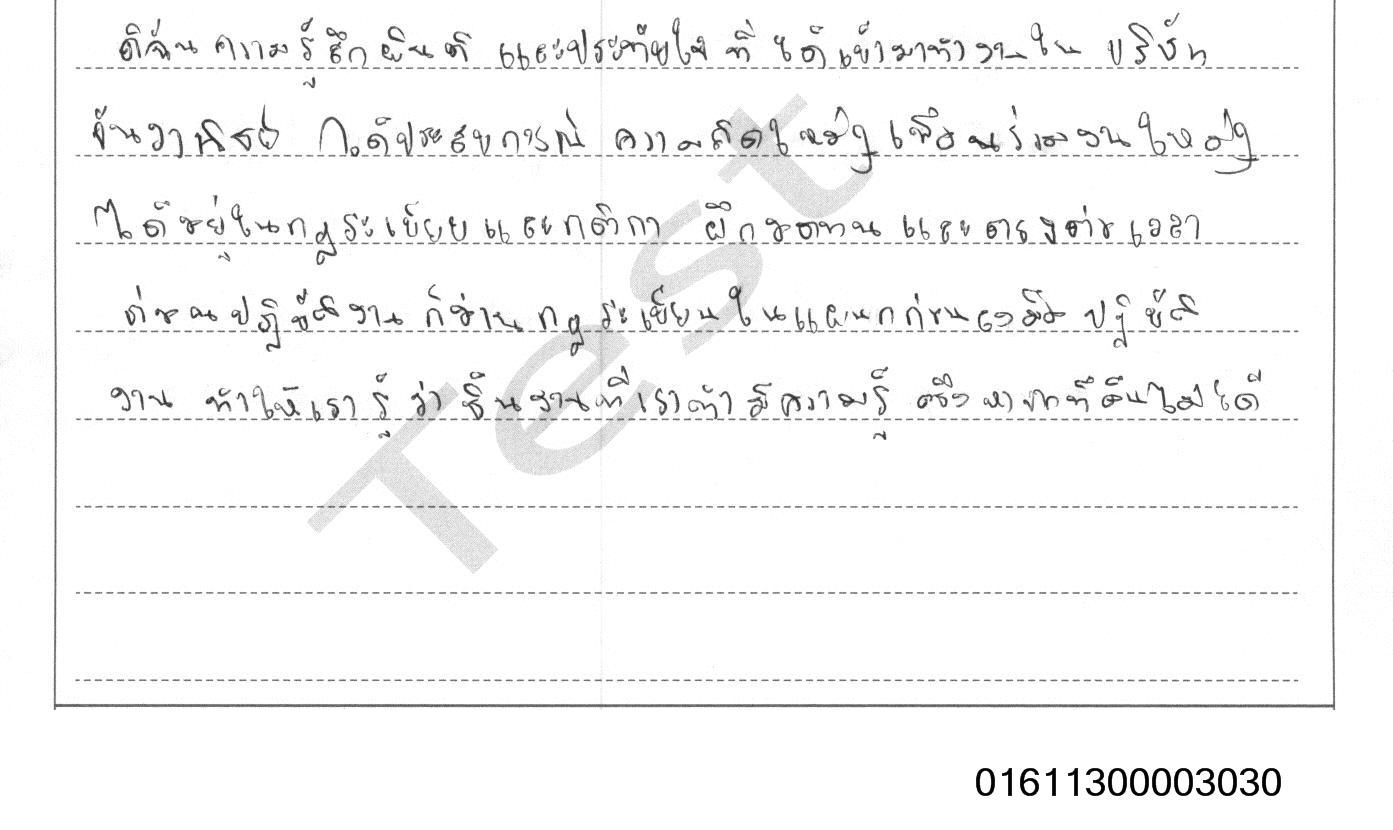 ดิฉันความรู้สึกยินดี และประทับใจที่ ได้เข้ามาทำงานใน บริษัท
ได้ประสบการณ์ ความคิดใหม่ๆ เพื่อนร่วมงานใหม่ๆ
ได้อยู่ในกฎระเบียบและกติกา ฝึกอดทน และตรงต่อเวลา
ก่อนปฏิบัติงาน ก็อ่าน กฎระเบียบในแผนกก่อนลงมือ ปฏิบัติ
งาน ทำให้เรา รู้ ว่า ชิ้นงานที่เราทำ มีความรู้ ซึ่งหาจากที่อื่นไม่ได้
Test
01611300003030